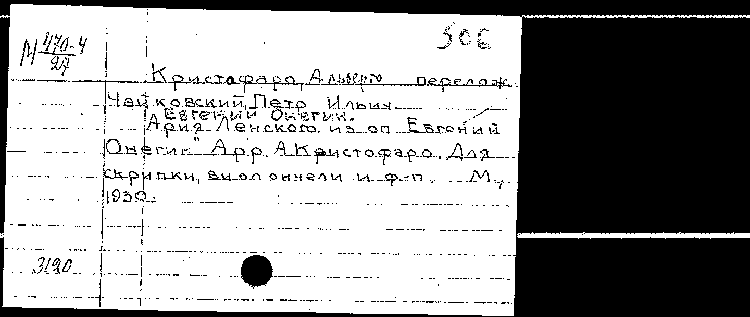 506
М 470-4
27
Кристафаро, Альберто перелож.
Чайковский, Петр Ильич
Евгений Онегин.
Ария Ленского из оп. Евгений
Онегин" Арр. А. Кристофаро. Для
скрипки, виолончели и ф-п. М.,
1930.
3120